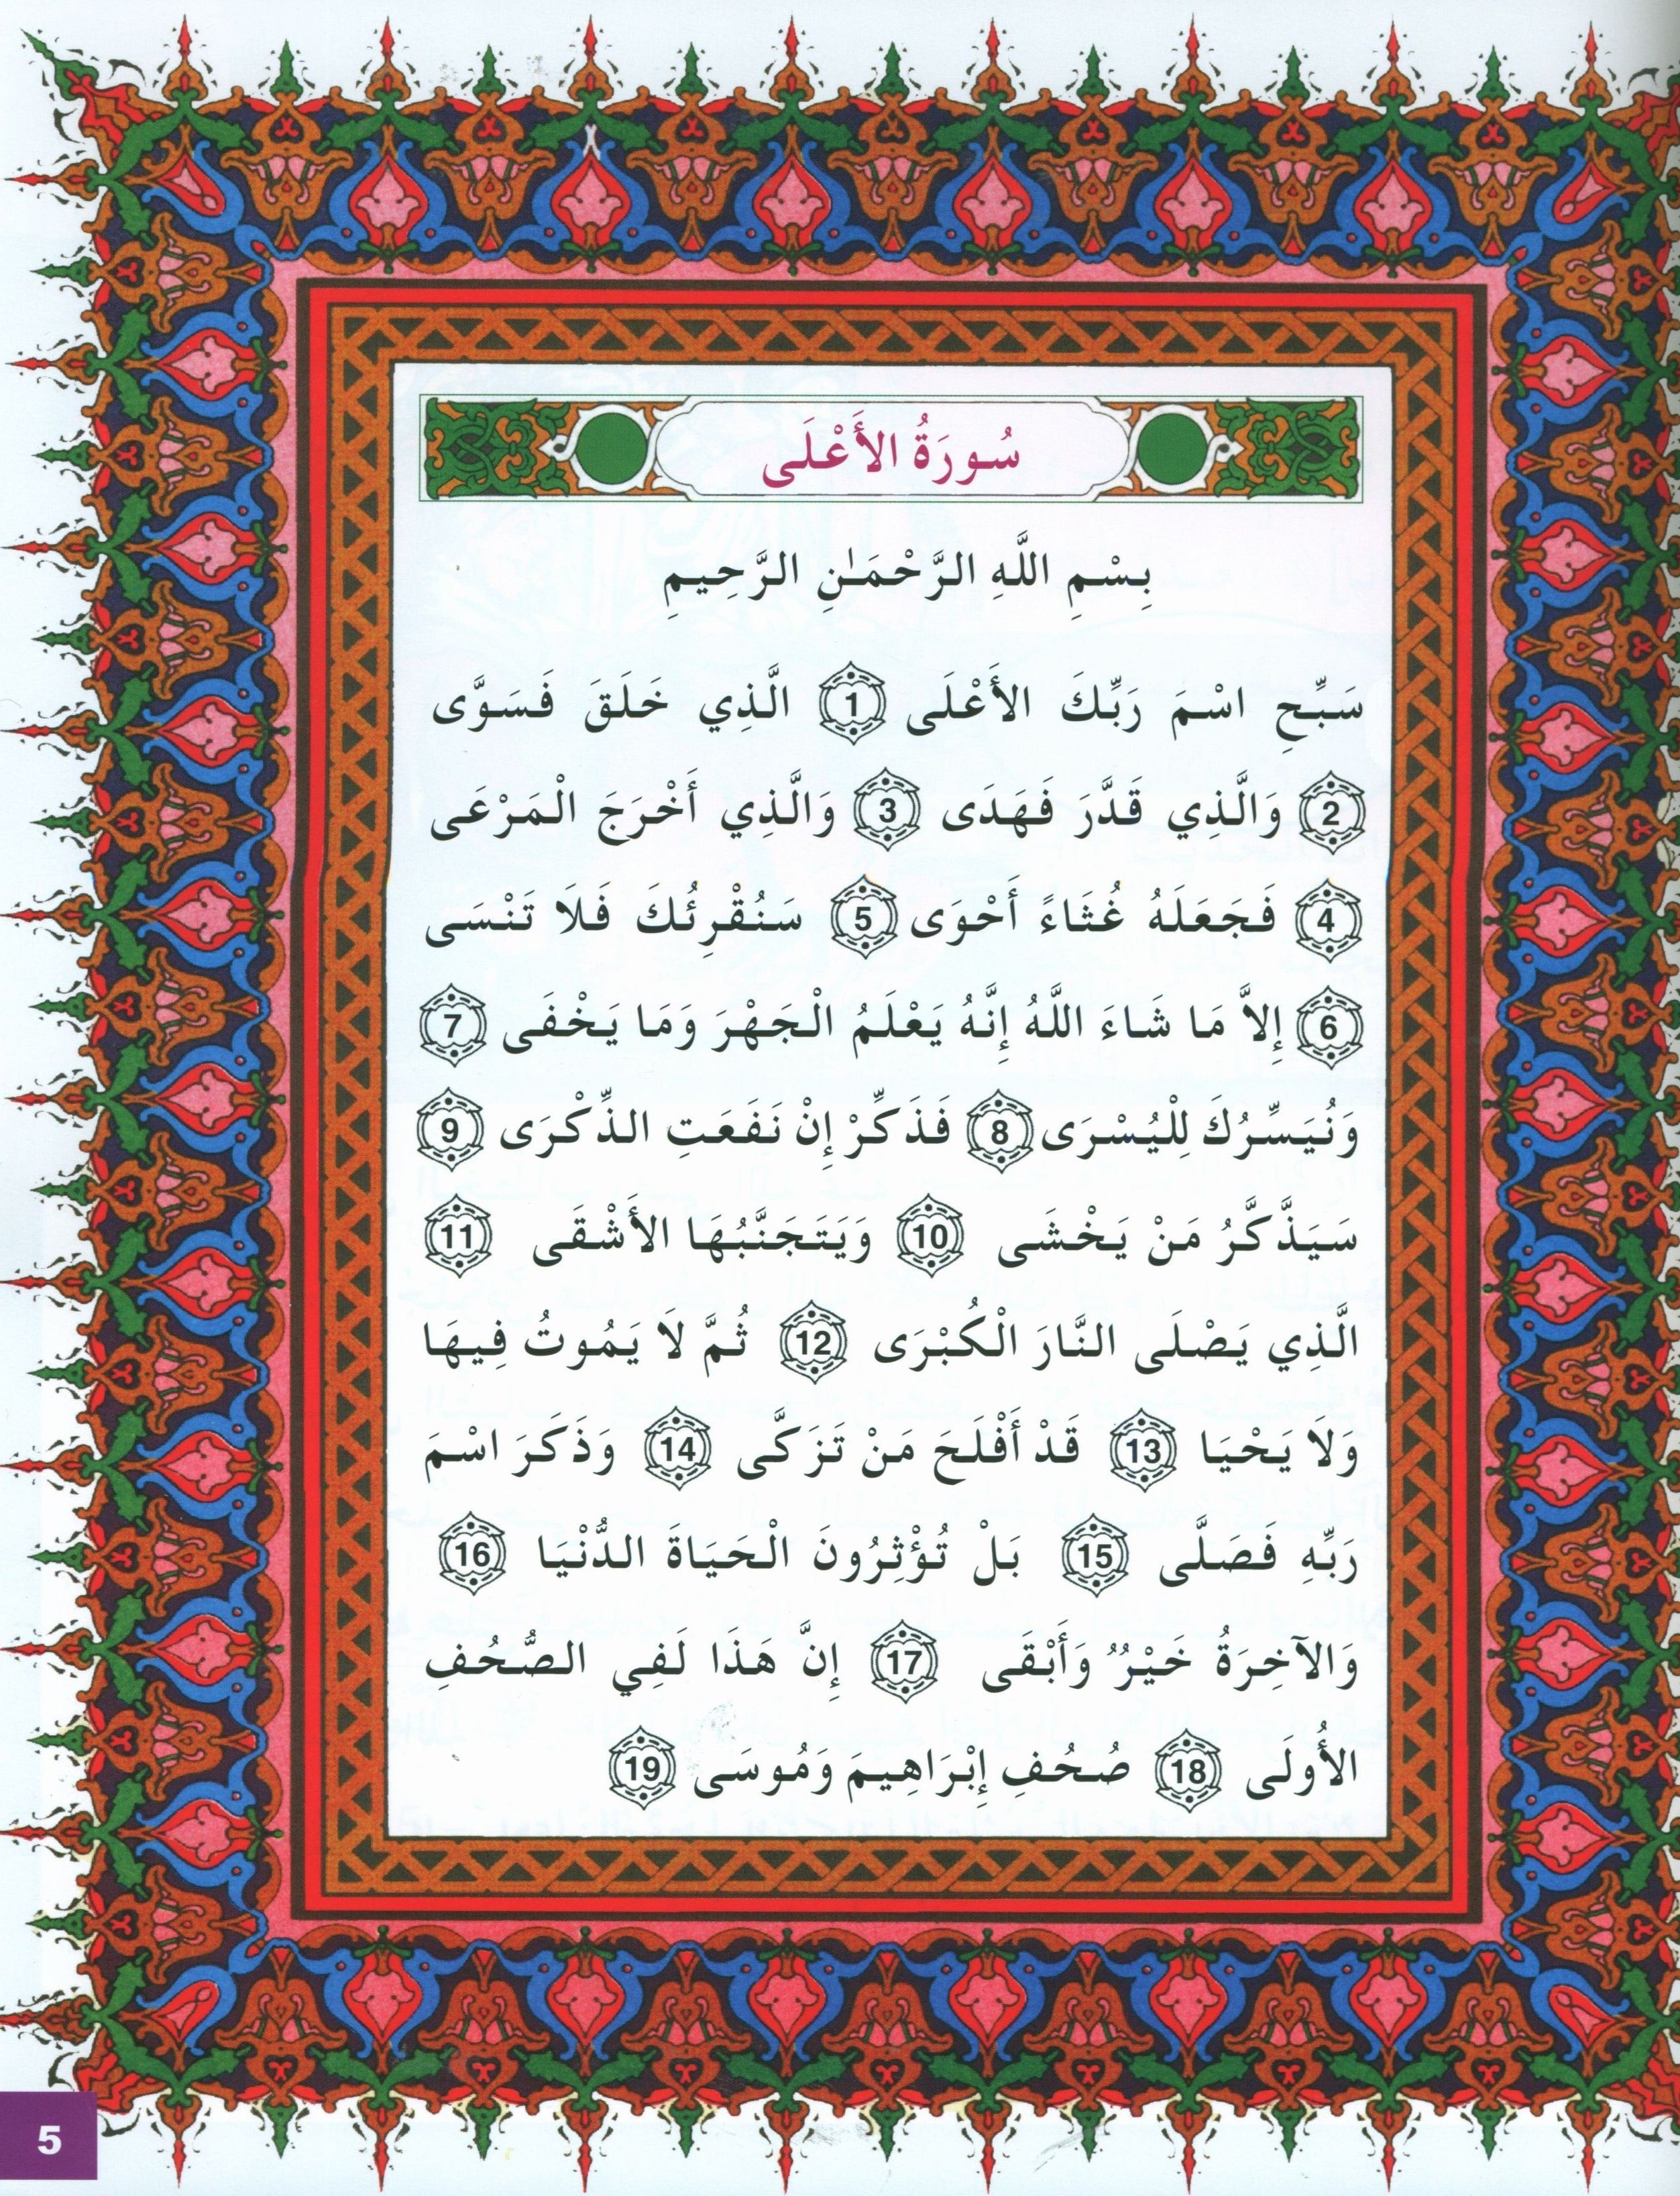 سُورَةُ الأَعْلَى
بِسْمِ اللَّهِ الرَّحْمَـٰنِ الرَّحِيمِ
سَبِّحِ اسْمَ رَبِّكَ الأَعْلَى 1 الَّذِي خَلَقَ فَسَوَّى
2 وَالَّذِي قَدَّرَ فَهَدَى 3 وَالَّذِي أَخْرَجَ الْمَرْعَى
4 فَجَعَلَهُ غُثَاءً أَحْوَى 5 سَنُقْرِئُكَ فَلَا تَنْسَى
6 إِلاَّ مَا شَاءَ اللَّهُ إِنَّهُ يَعْلَمُ الْجَهْرَ وَمَا يَخْفَى 7
وَنُيَسِّرُكَ لِلْيُسْرَى 8 فَذَكِّرْ إِنْ نَفَعَتِ الذِّكْرَى 9
سَيَذَّكَّرُ مَنْ يَخْشَى 10 وَيَتَجَنَّبُهَا الأَشْقَى 11
الَّذِي يَصْلَى النَّارَ الْكُبْرَى 12 ثُمَّ لَا يَمُوتُ فِيهَا
وَلَا يَحْيَا 13 قَدْ أَفْلَحَ مَنْ تَزَكَّى 14 وَذَكَرَ اسْمَ
رَبِّهِ فَصَلَّى 15 بَلْ تُؤْثِرُونَ الْحَيَاةَ الدُّنْيَا 16
وَالآخِرَةُ خَيْرٌ وَأَبْقَى 17 إِنَّ هَذَا لَفِي الصُّحُفِ
الأُولَى 18 صُحُفِ إِبْرَاهِيمَ وَمُوسَى 19
5